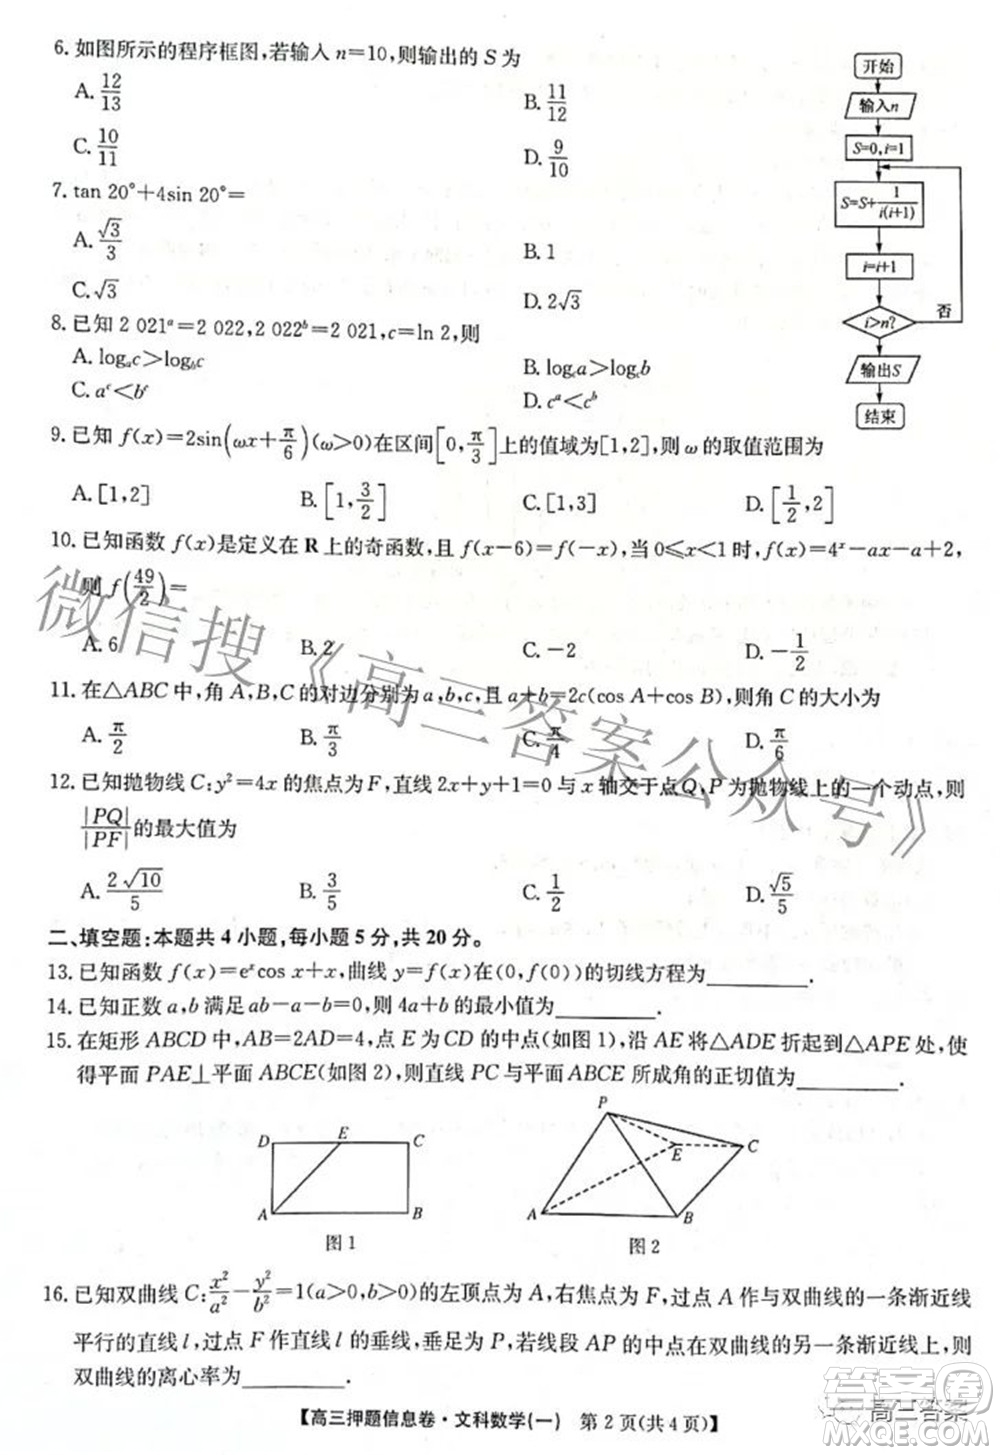 6.如图所示的程序框图,若输入 n=10,则输出的 S 为
A. 12/13
B. 11/12
C. 10/11
D. 9/10
开始
输入n
S=0,i=1
S=S+1/(i(i+1))
i=i+1
i>n?
否
输出S
结束
7. tan 20°+4sin 20°=
A. √3/3
B. 1
C. √3
D. 2√3
8. 已知 2 021^a=2 022,2 022^b=2 021,c=ln 2,则
A. log_a c>log_b c
B. log_c a>log_c b
C. a^c<b^c
D. c^a<c^b
9. 已知 f(x)=2sin(ωx+π/6)(ω>0)在区间[0,π/3]上的值域为[1,2],则 ω 的取值范围为
A.[1,2]
B.[1,3/2]
C.[1,3]
D.[1/2,2]
10. 已知函数 f(x)是定义在 R 上的奇函数,且 f(x-6)=f(-x),当 0⩽x<1 时,f(x)=4^x-ax-a+2,
则 f(49/2)=
A. 6
B. 2
C. -2
D. -1/2
11. 在△ABC 中,角 A,B,C 的对边分别为 a,b,c,且 a+b=2c(cos A+cos B),则角 C 的大小为
A. π/2
B. π/3
C. π/4
D. π/6
12. 已知抛物线 C:y²=4x 的焦点为 F,直线 2x+y+1=0 与 x 轴交于点 Q,P 为抛物线上的一个动点,则
|PQ|/|PF|的最大值为
A. 2√10/5
B. 3/5
C. 1/2
D. √5/5
二、填空题:本题共 4 小题,每小题 5 分,共 20 分。
13. 已知函数 f(x)=e^x cos x+x,曲线 y=f(x)在(0,f(0))的切线方程为________.
14. 已知正数 a,b 满足 ab-a-b=0,则 4a+b 的最小值为________.
15. 在矩形 ABCD 中,AB=2AD=4,点 E 为 CD 的中点(如图 1),沿 AE 将△ADE 折起到△APE 处,使
得平面 PAE⊥平面 ABCE(如图 2),则直线 PC 与平面 ABCE 所成角的正切值为________.
D E C
A B
图 1
P
E C
A B
图 2
16. 已知双曲线 C:x²/a²-y²/b²=1(a>0,b>0)的左顶点为 A,右焦点为 F,过点 A 作与双曲线的一条渐近线
平行的直线 l,过点 F 作直线 l 的垂线,垂足为 P,若线段 AP 的中点在双曲线的另一条渐近线上,则
双曲线的离心率为________.
【高三押题信息卷·文科数学(一) 第 2 页(共 4 页)】
微信搜《高三答案公众号》
高三答案